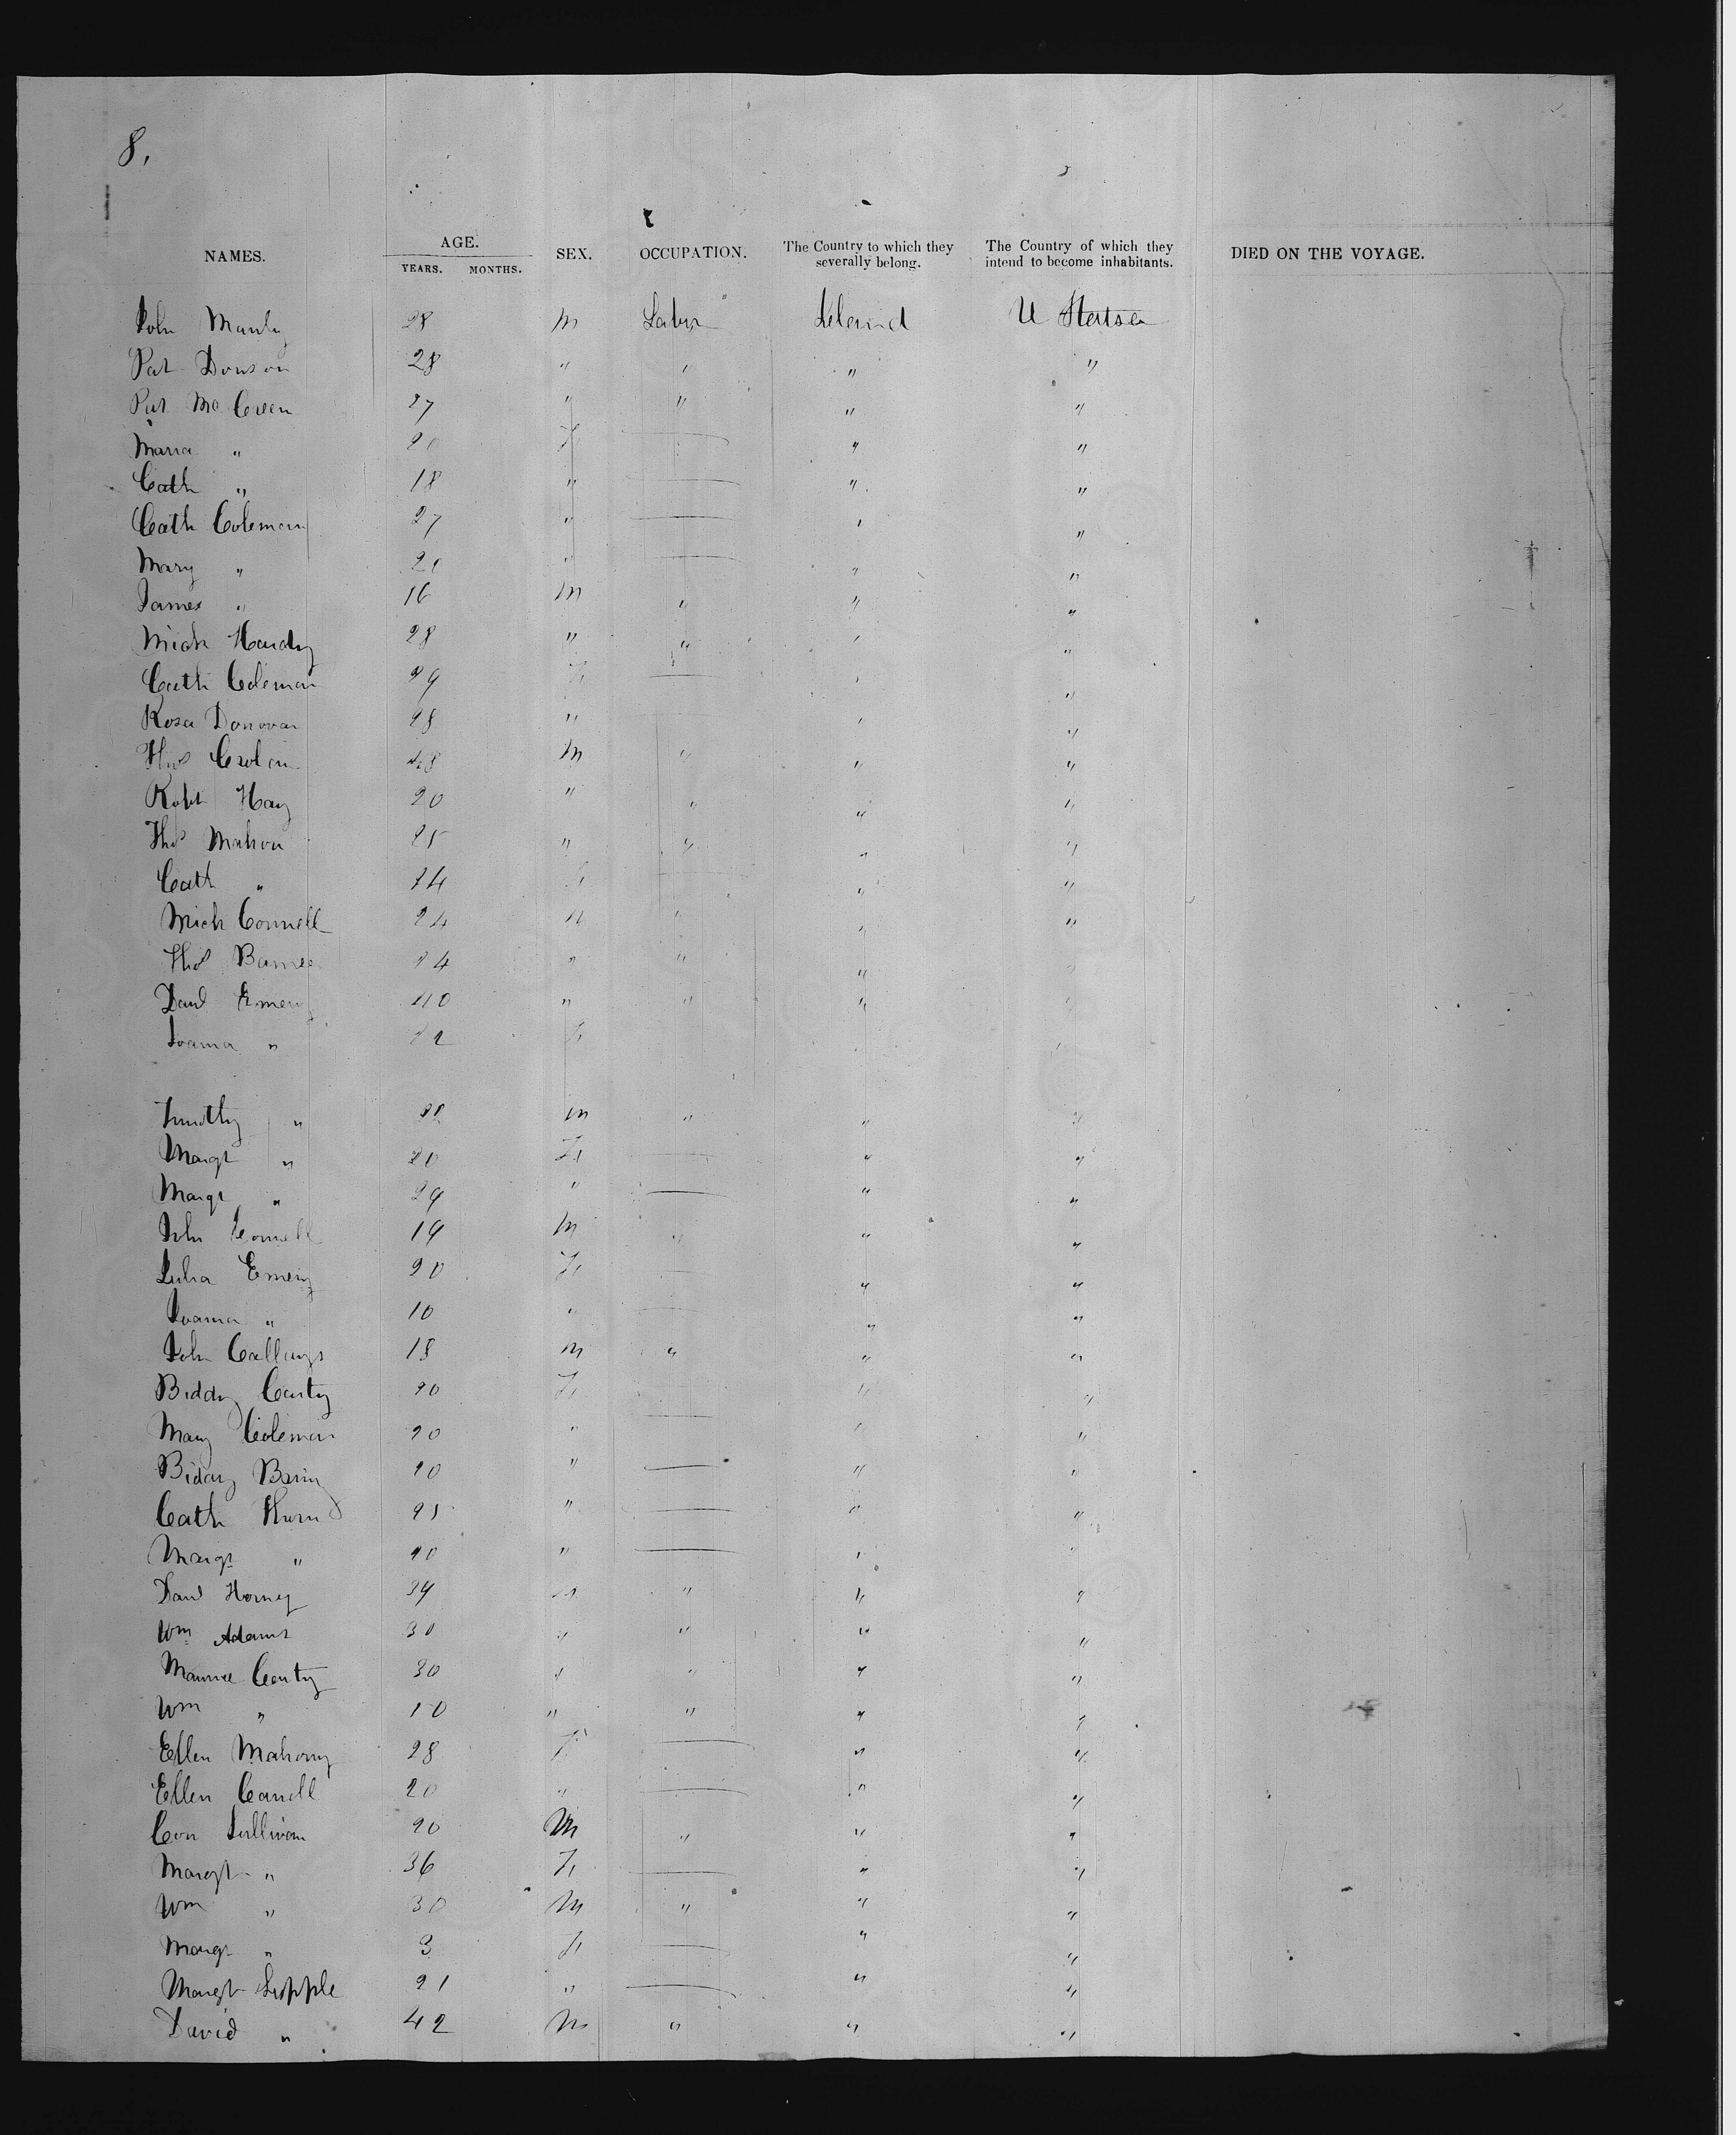 8.
NAMES. AGE. YEARS. MONTHS. SEX. OCCUPATION. The Country to which they severally belong. The Country of which they intend to become inhabitants. DIED ON THE VOYAGE.
John Manly 28 M Labor Ireland U States
Pat Donson 28 " " " "
Pat McCreen 27 " " " "
Maria " 20 F — " "
Cath " 18 " — " "
Cath Coleman 27 " — " "
Mary " 21 " — " "
James " 16 M " " "
Mich Hardy 28 " " " "
Cath Coleman 29 F — " "
Rosa Donovan 28 " " "
Thos 48 M " " "
Robt Hay 20 " " " "
Thos Mahon 25 " " " "
Cath " 24 F — " "
Mich Connell 24 M " " "
Thos 24 " " " "
Danl Emery 40 " " " "
Joanna " F " "
Timothy " M " " "
Margt " 20 F — " "
Margt " 29 " — " "
John Connell 19 M " " "
Julia Emery 20 F — " "
Joanna " 10 " — " "
John Callings 18 M " " "
Biddy Carty 20 F " "
Mary Coleman 20 " — " "
Biddy 20 " — " "
Cath 25 " — " "
Margt " 20 " — " "
Danl Horney 34 M " " "
Wm Adams 30 " " " "
Maurice Carty 30 " " " "
Wm " 10 " " " "
Ellen Mahony 28 F — " "
Ellen Carroll 20 " — " "
Con Sullivan 20 M " " "
Margt " 36 F — " "
Wm " 30 M " " "
Margt " 3 F — " "
Margt Supple 21 " — " "
David " 42 M " " "